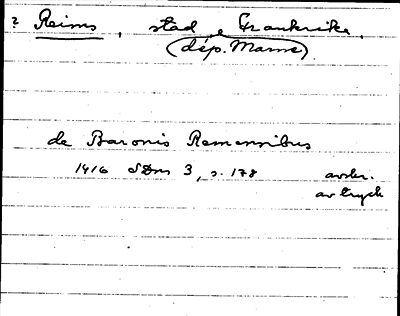 ? Reims, stad, Frankrike,
(dép. Marne)
de Baronis Remennibus
1416 SDns 3, s. 178 avskr.
av tryck